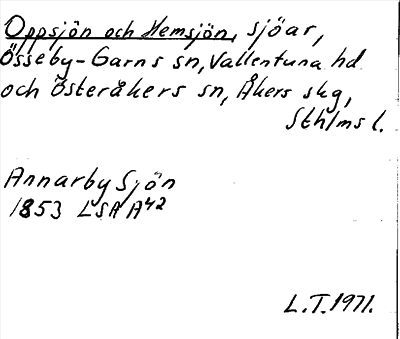 Oppsjön och Hemsjön, sjöar,
Össeby-Garns sn, Vallentuna hd
och Österåkers sn, Åkers skg,
Sthlms l.
Annarby Sjön
1853 LSA A42
L.T. 1971.